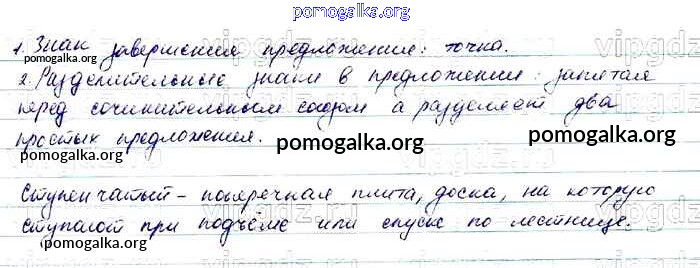 pomogalka.org
1. Знак завершения предложения: точка.
pomogalka.org
2. Разделительные знаки в предложении: запятая
перед сочинительным союзом а разделяет два
простых предложения.
pomogalka.org pomogalka.org
pomogalka.org
Ступенчатый - поперечная плита, доска, на которую
ступают при подъёме или спуске по лестнице.
pomogalka.org